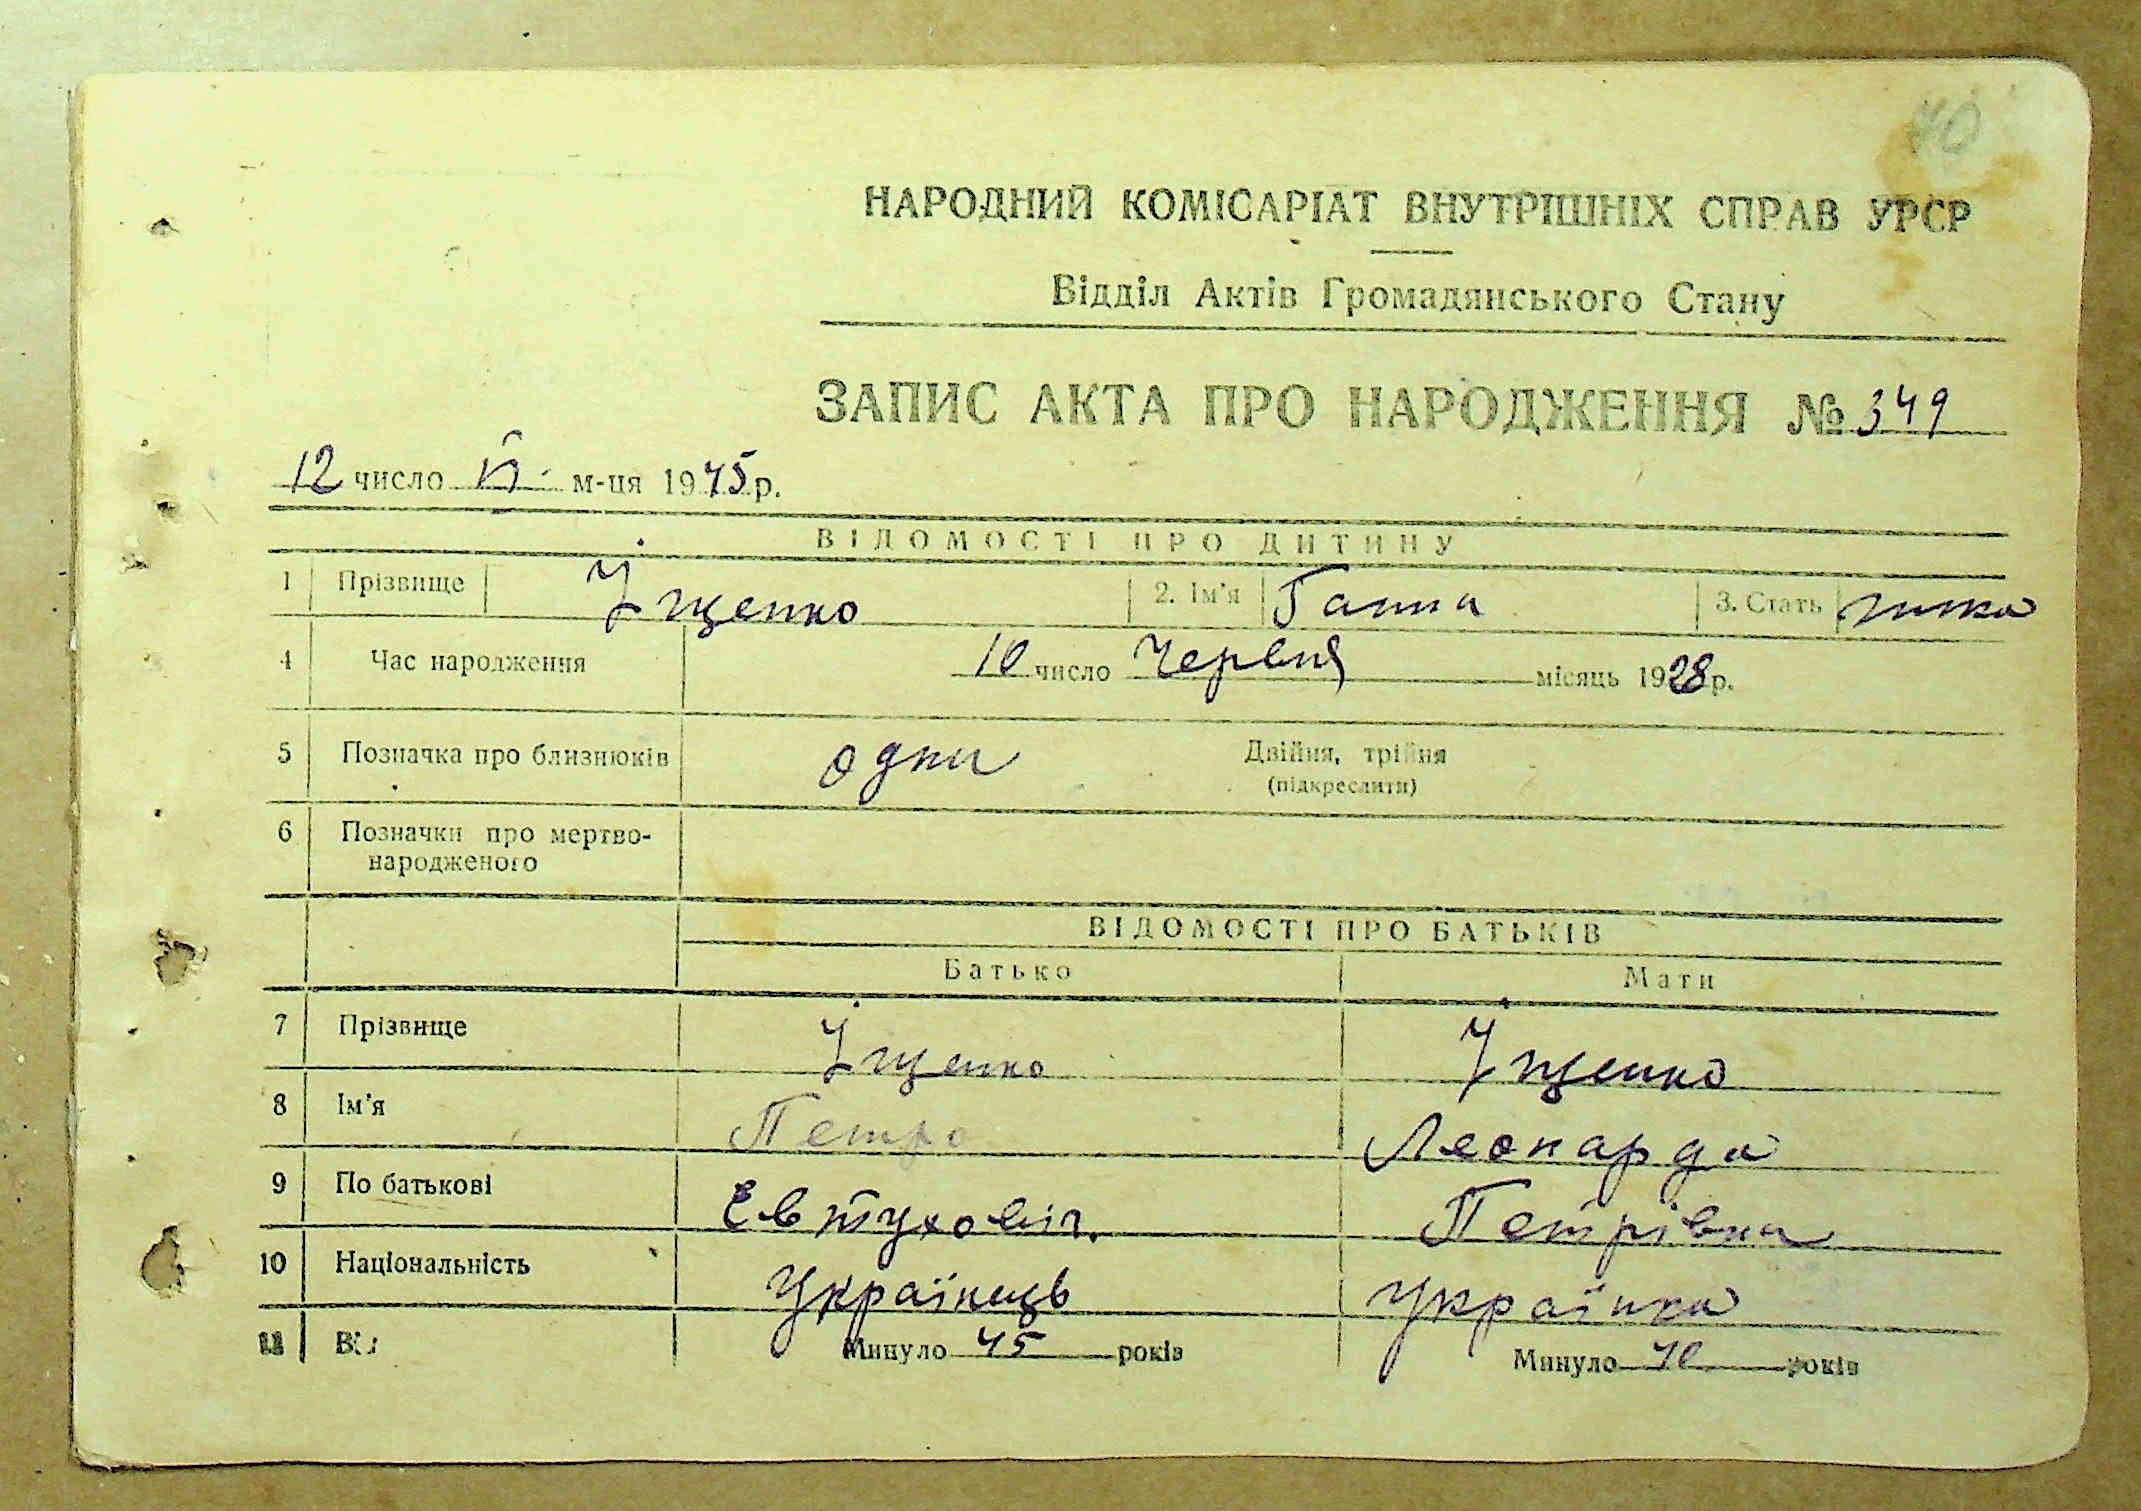 40
НАРОДНИЙ КОМІСАРІАТ ВНУТРІШНІХ СПРАВ УРСР
Відділ Актів Громадянського Стану
ЗАПИС АКТА ПРО НАРОДЖЕННЯ № 349
12 число м-ця 1945 р.
ВІДОМОСТІ ПРО ДИТИНУ
1 Прізвище Іщенко 2. Ім'я Ганна 3. Стать жінка
4 Час народження 10 число Червня місяць 1928 р.
5 Позначка про близнюків одни Двійня, трійня
(підкреслити)
6 Позначки про мертво-
народженого
ВІДОМОСТІ ПРО БАТЬКІВ
Батько Мати
7 Прізвище Іщенко Іщенко
8 Ім'я Петро Леонарда
9 По батькові Евтухович. Петрівна
10 Національність Українець Українка
11 Вік Минуло 45 років Минуло 40 років